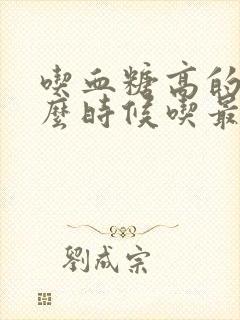 喫血糖高的
麼時候喫最
劉成宗